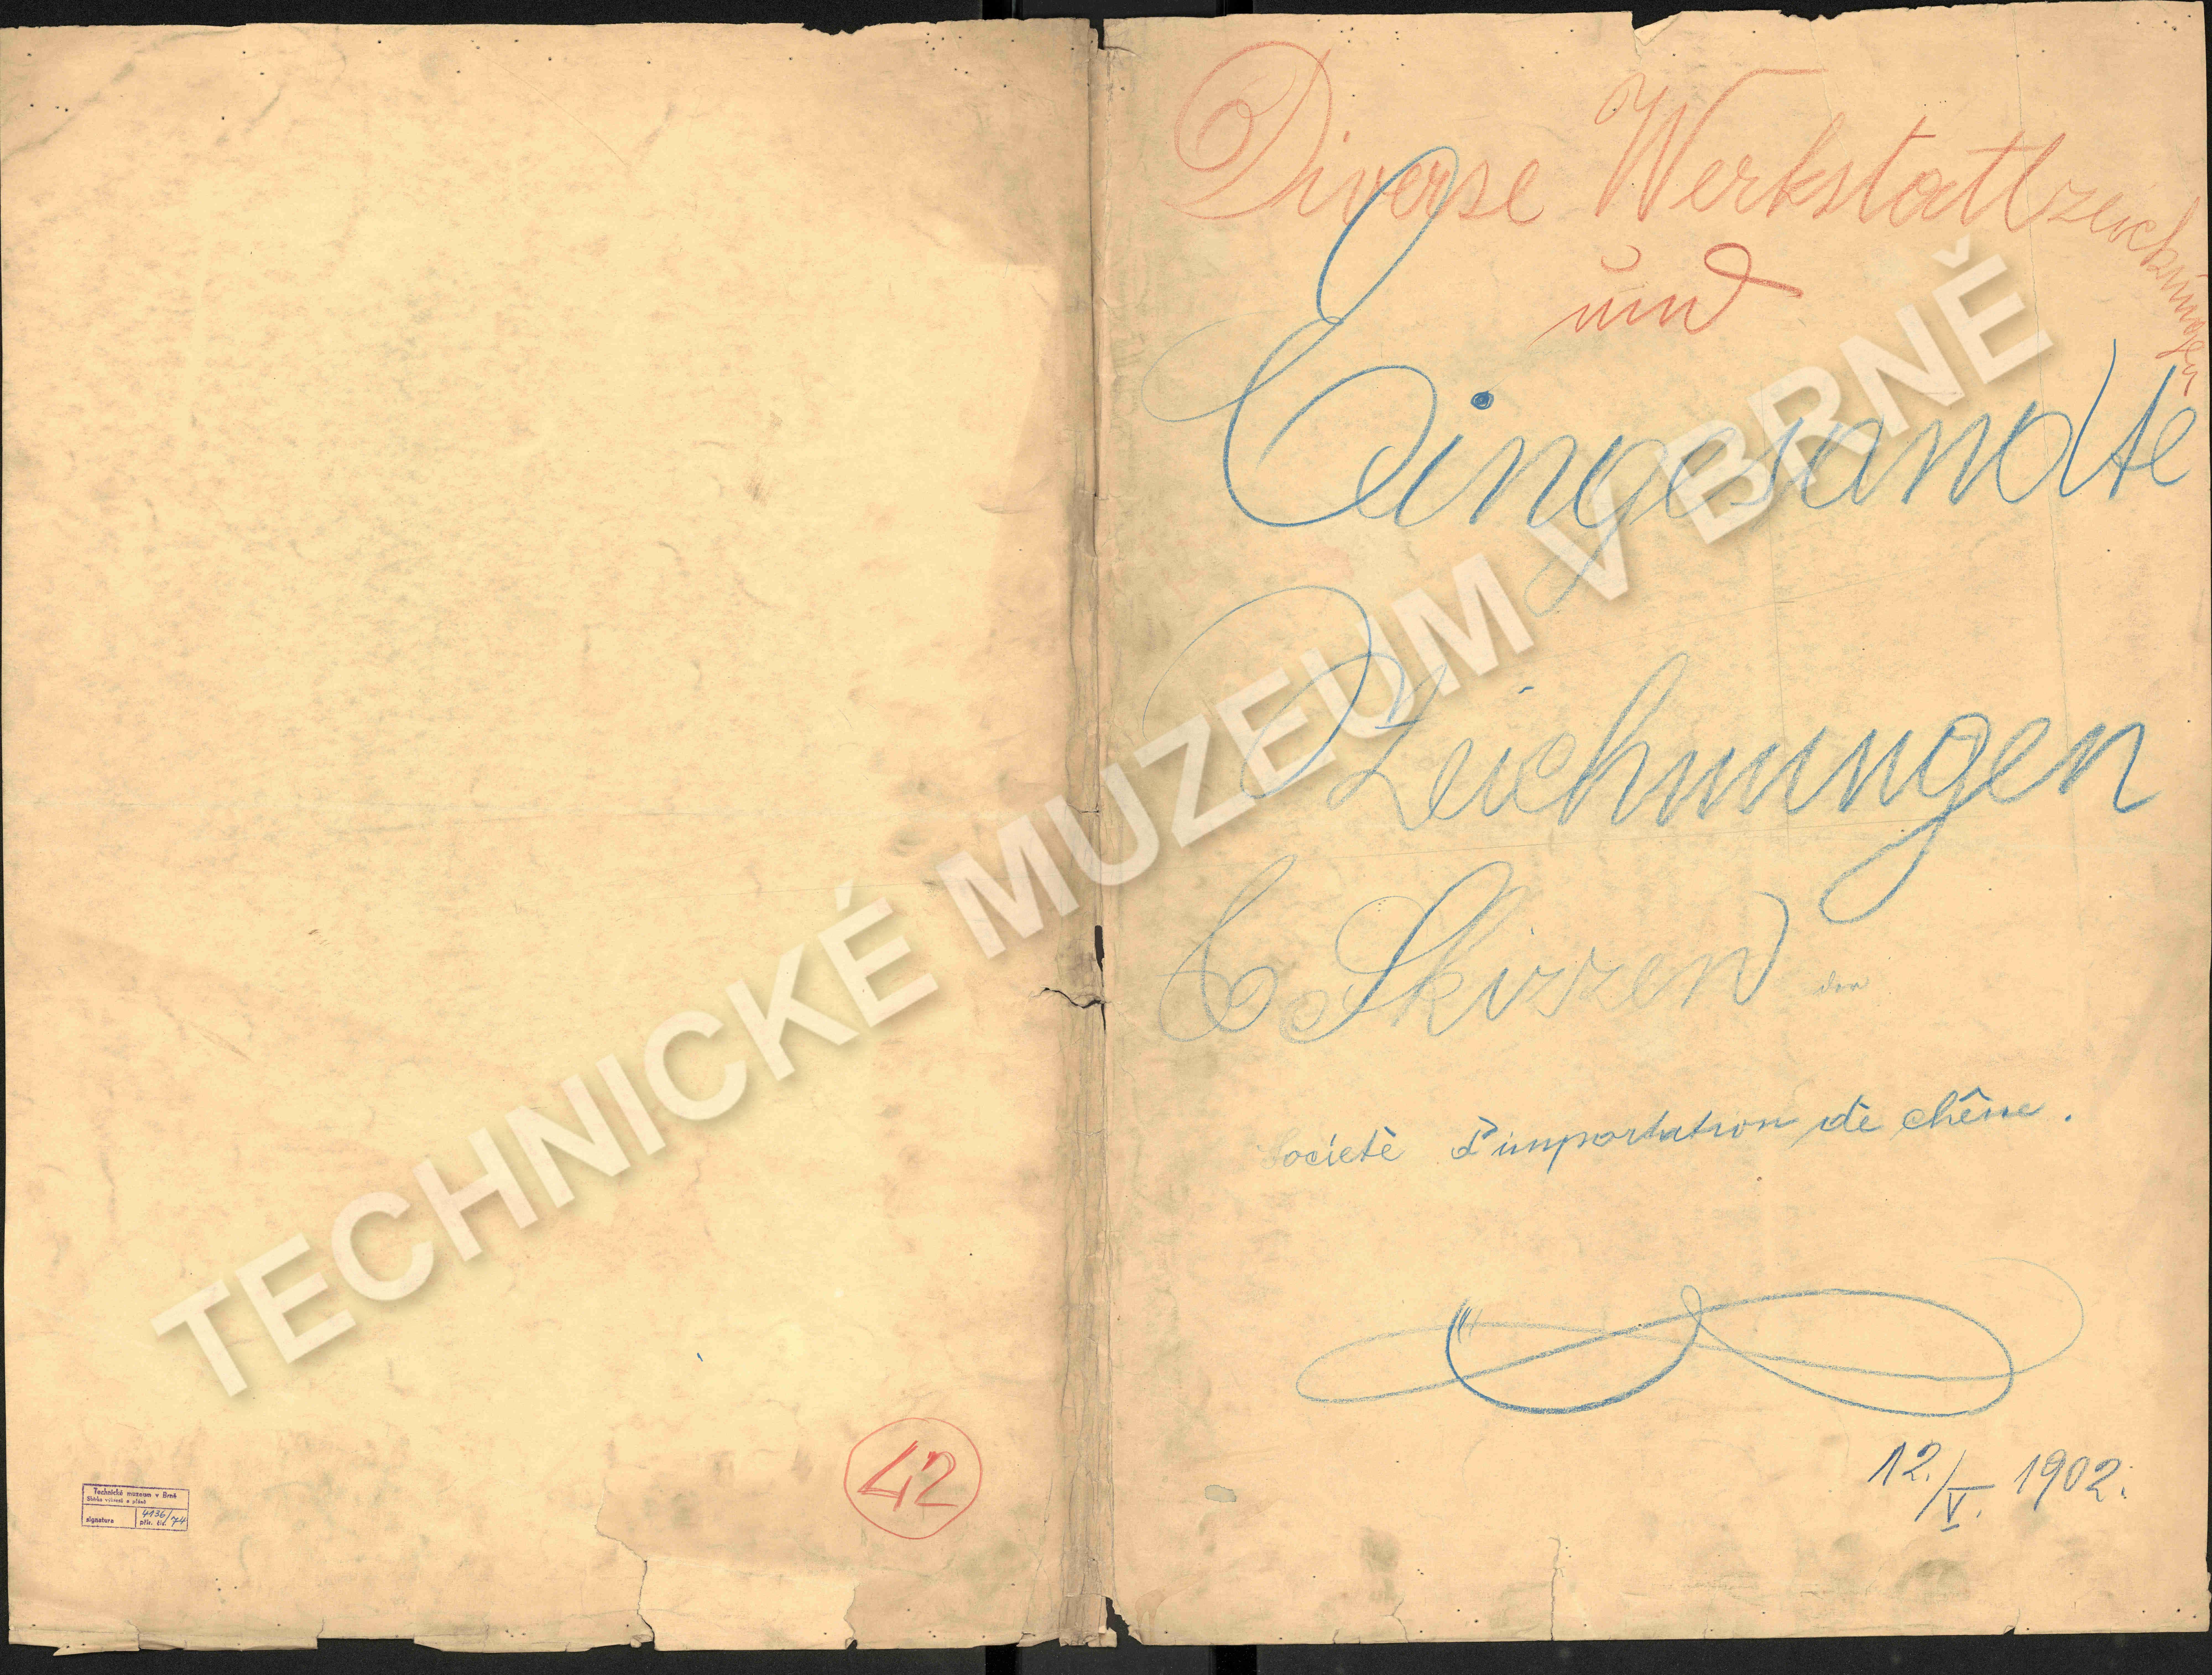 Diverse Werkstattzeichnungen
und
Eingesandte
Zeichnungen
& Skizzen der
Societè d'importation de chêne.
12./V. 1902.
42
Technické muzeum v Brně
Sbírka výkresů a plánů
signatura
4136/74
přír. čís.
TECHNICKÉ MUZEUM V BRNĚ